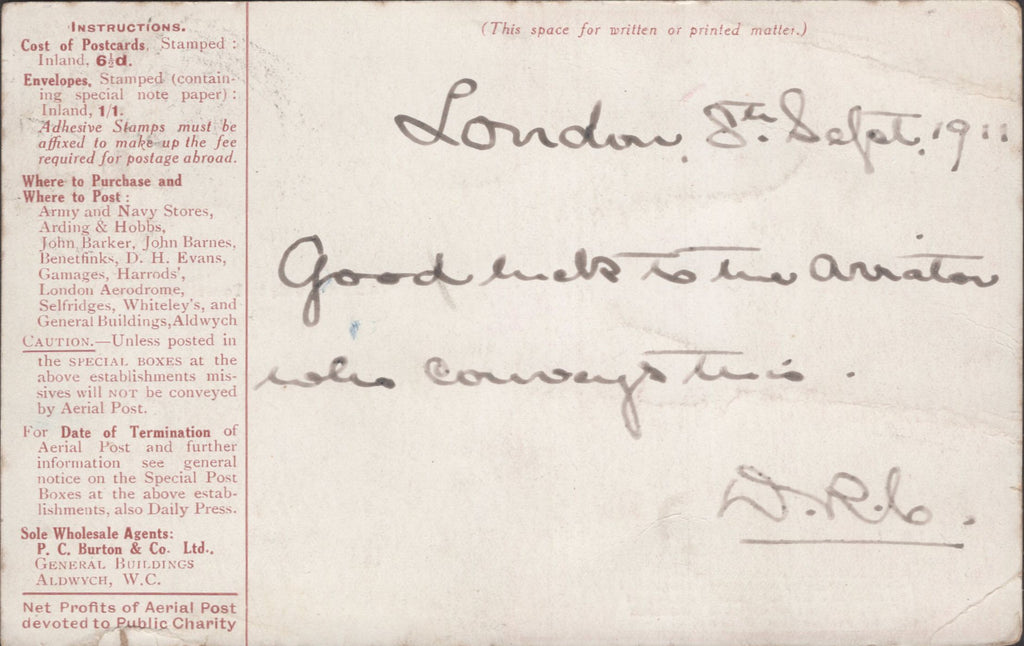 INSTRUCTIONS.
Cost of Postcards, Stamped :
Inland, 6½d.
Envelopes, Stamped (contain-
ing special note paper) :
Inland, 1/1.
Adhesive Stamps must be
affixed to make up the fee
required for postage abroad.
Where to Purchase and
Where to Post :
Army and Navy Stores,
Arding & Hobbs,
John Barker, John Barnes,
Benetfinks, D. H. Evans,
Gamages, Harrods',
London Aerodrome,
Selfridges, Whiteley's, and
General Buildings, Aldwych
CAUTION.—Unless posted in
the SPECIAL BOXES at the
above establishments mis-
sives will NOT be conveyed
by Aerial Post.
For Date of Termination of
Aerial Post and further
information see general
notice on the Special Post
Boxes at the above estab-
lishments, also Daily Press.
Sole Wholesale Agents:
P. C. Burton & Co. Ltd.,
GENERAL BUILDINGS
ALDWYCH, W.C.
Net Profits of Aerial Post
devoted to Public Charity
(This space for written or printed matter.)
London, 8th Sept. 1911
Good luck to the Aviator
who conveys this.
D.R.C.